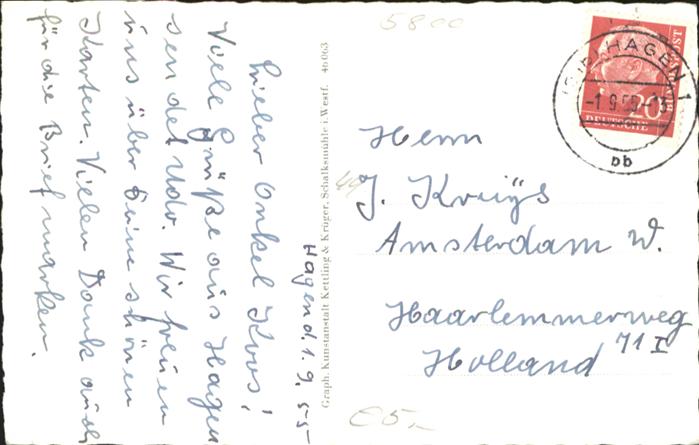 Hagen d. 1. 9. 55
Lieber Onkel Koos!
Viele Grüße aus Hagen
sendet Udo. Wir freuen
uns über Deine schönen
Karten. Vielen Dank auch
für die Briefmarken.
Graph. Kunstanstalt Kettling & Krüger, Schalksmühle i. Westf. 46063
5800
HAGEN 1
-1.9.55
bb
20
DEUTSCHE
POST
Herrn
J. Kruijs
Amsterdam W.
Haarlemmerweg
71 I
Holland
€5,-